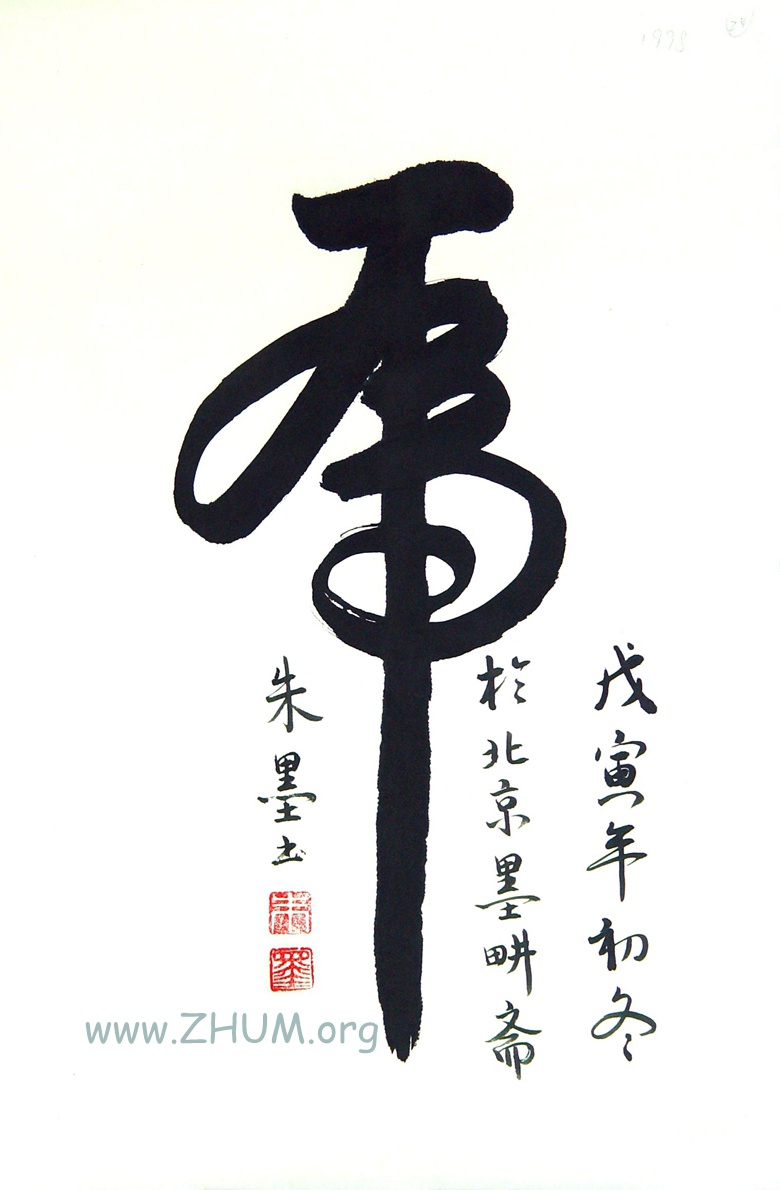 虎
戊寅年初冬
於北京墨畊斋
朱墨书
朱
墨
www.ZHUM.org